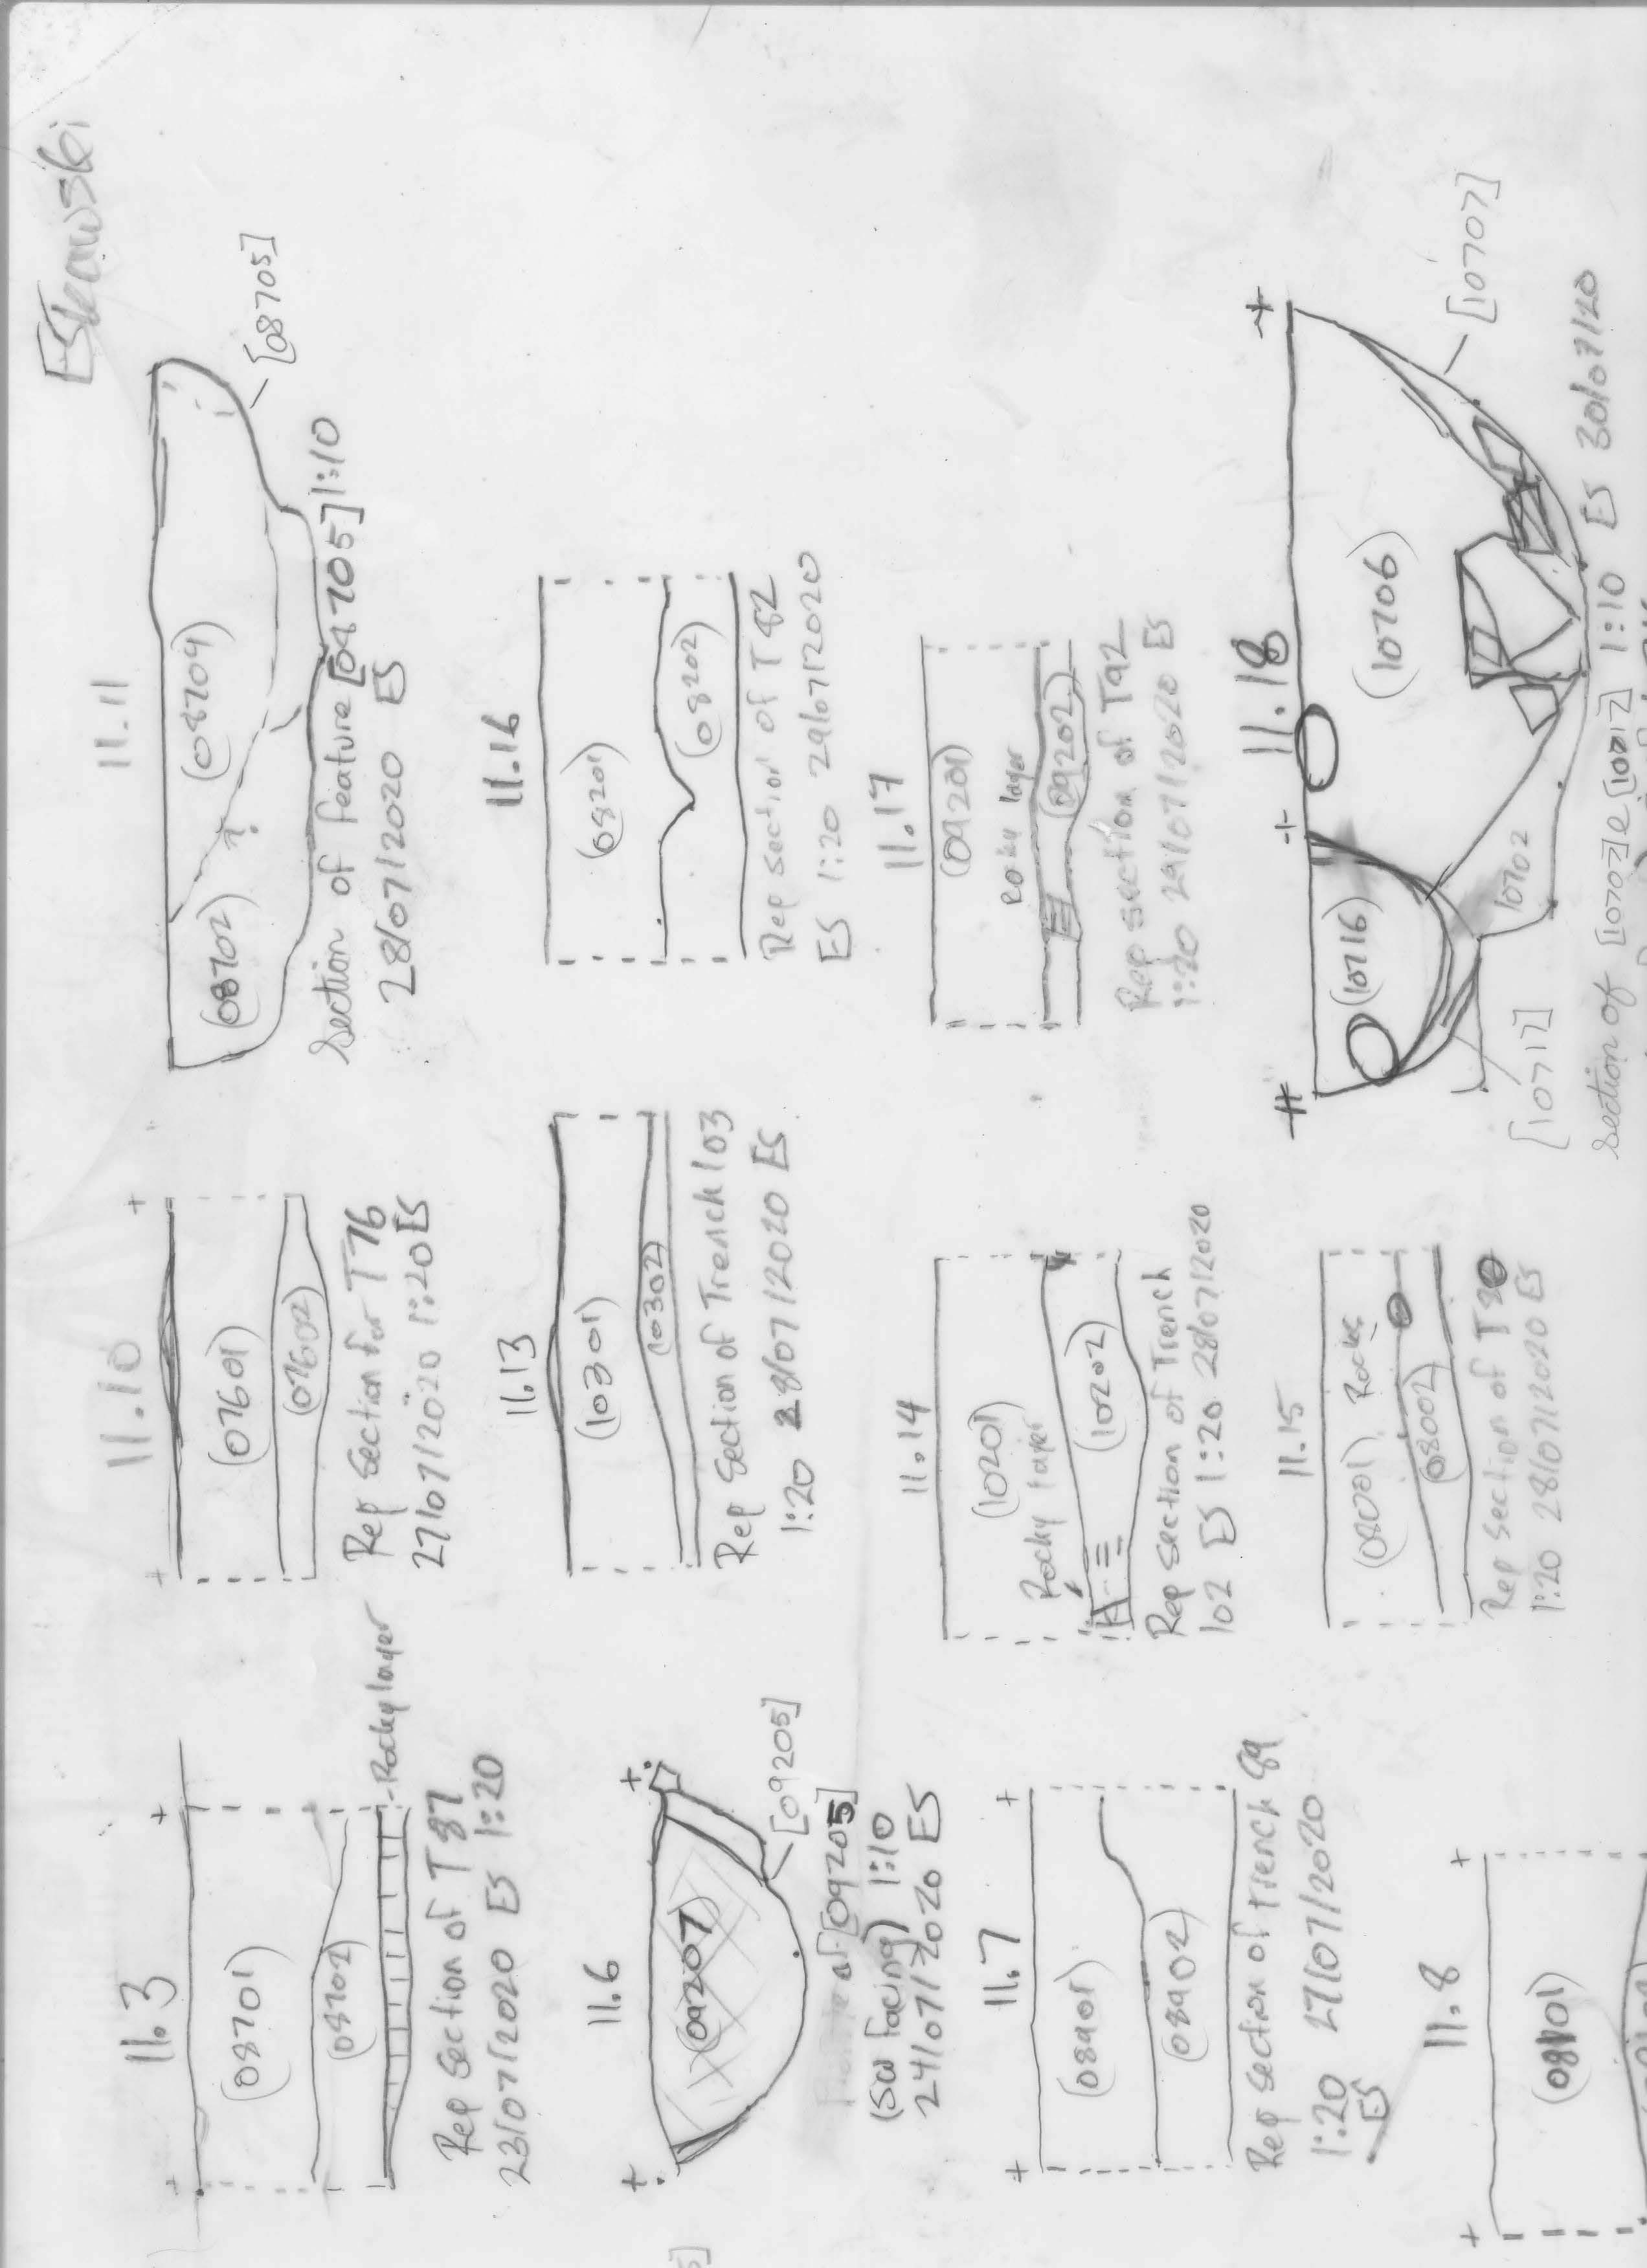 11.3
(08701)
(08702)
Rocky layer
Rep Section of T87
23/07/2020 ES 1:20
11.6
(09207)
[09205]
of [09205]
(SW facing) 1:10
24/07/2020 ES
11.7
(08901)
(08902)
Rep Section of Trench 89
1:20 27/07/2020
ES
11.8
(08101)
11.10
(07601)
(07602)
Rep Section for T76
27/07/2020 1:20 ES
11.13
(10301)
(10302)
Rep Section of Trench 103
1:20 28/07/2020 ES
11.14
(10201)
Rocky layer
(10202)
Rep Section of Trench
102 ES 1:20 28/07/2020
11.15
(08001) Rocks
(08002)
Rep Section of T80
1:20 28/07/2020 ES
11.11
(08702) ?
(08704)
[08705]
Section of feature [08705] 1:10
28/07/2020 ES
11.16
(08201)
(08202)
Rep Section of T82
ES 1:20 29/07/2020
11.17
(09201)
Rocky layer
(09202)
Rep section of T92
1:20 29/07/2020 ES
11.18
(10716)
(10706)
10702
[10717]
[10707]
Section of [10707] e 1:10 ES 30/07/20